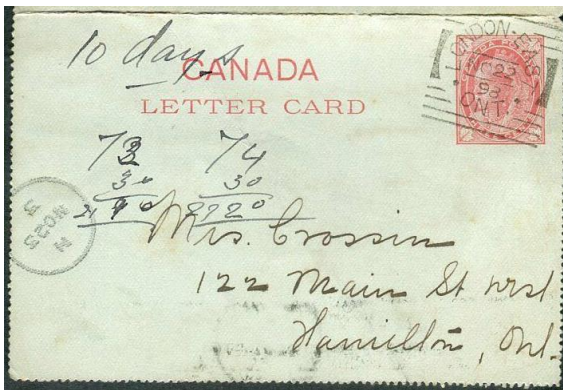 10 days
CANADA
LETTER CARD
LONDON-EAST
22
98
ONT.
73 74
30 30
2190 2220
Mrs. Crossin
122 Main St West
Hamilton, Ont.